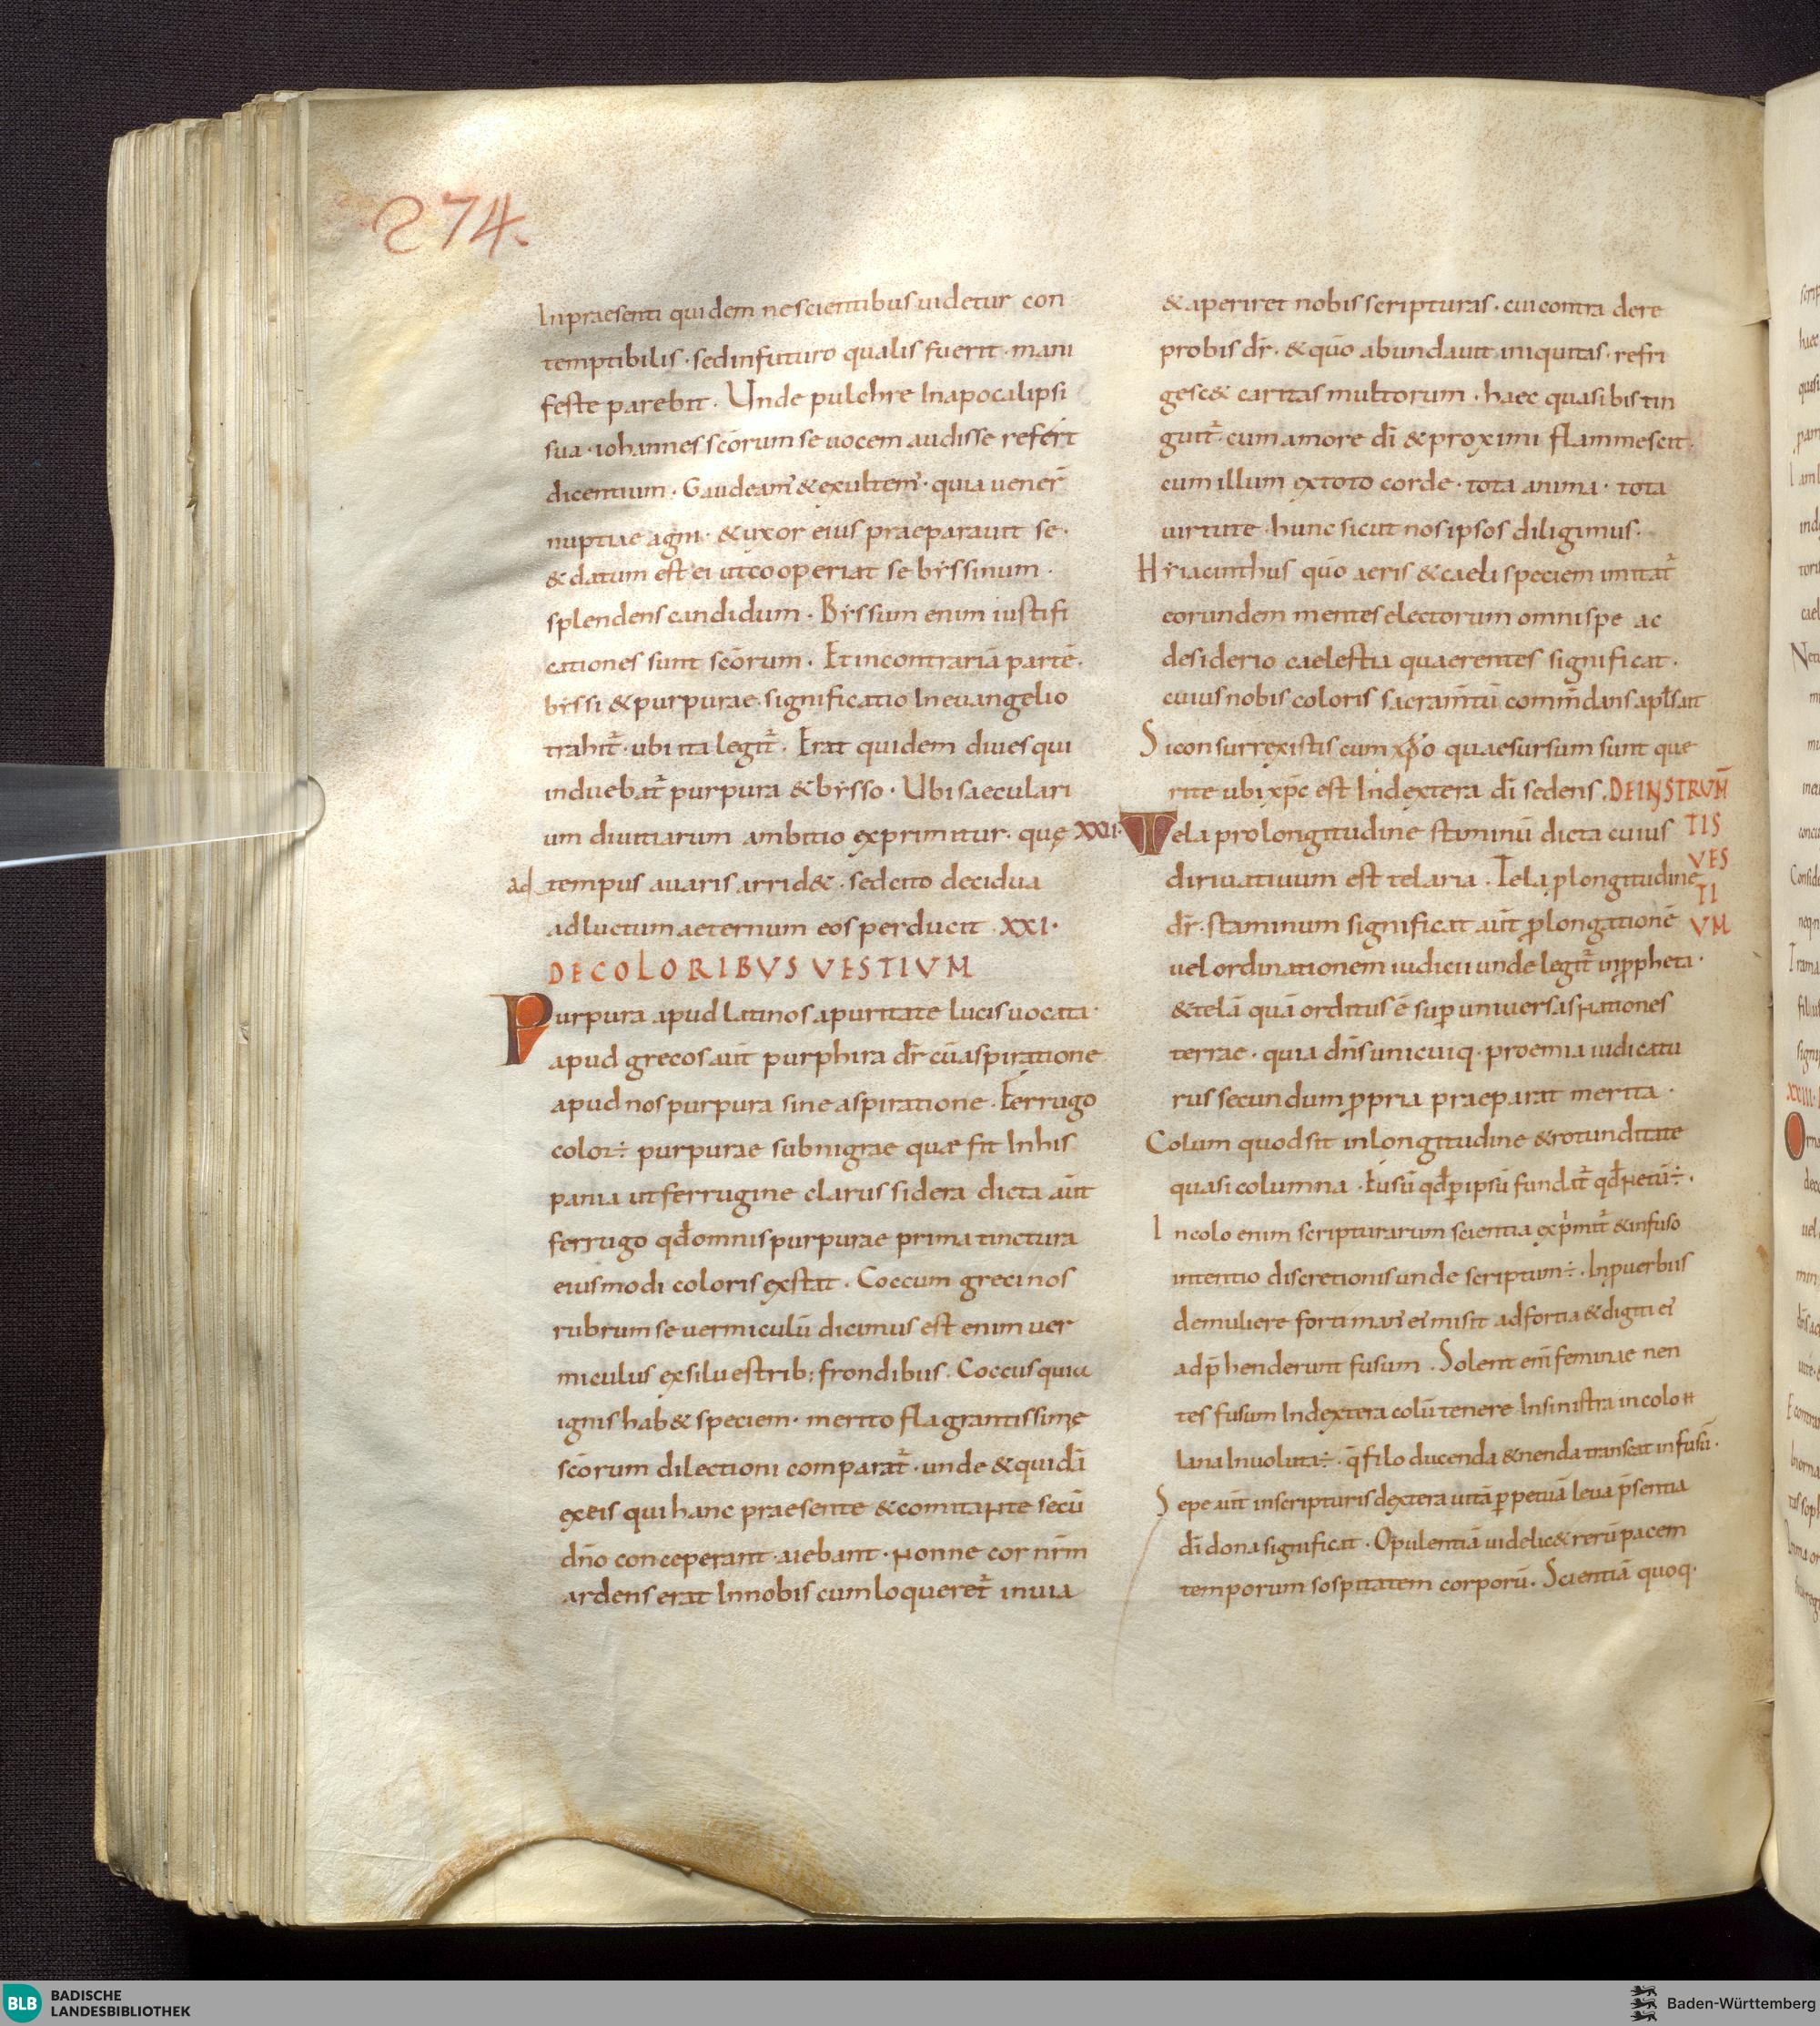 274.
Inpraesenti quidem nescientibus uidetur con
temptibilis · sedinfuturo qualis fuerit · mani
feste parebit · Unde pulchre Inapocalipsi
sua · iohannes scōrum se uocem audisse refert
dicentium · Gaudeam̄ & exultem̄ · quia uener̄
nuptiae agni · & uxor eius praeparauit se ·
& datum est ei utcooperiat se byssinum ·
splendens candidum · Byssum enim iustifi
cationes sunt scōrum · Et incontrariā partē ·
byssi & purpurae significatio Ineuangelio
trahit̄ · ubi ita legit̄ · Erat quidem diues qui
induebat̄ purpura & bysso · Ubi saeculari
um diuitiarum ambitio exprimitur · quę
ad tempus auaris arrid& · sedcito decidua
adluctum aeternum eos perducit · XXI ·
DECOLORIBUS VESTIUM
Purpura apud Latinos apuritate lucis uocata ·
apud grecos aūt purphira dr̄ cūaspiratione
apud nos purpura sine aspiratione · Ferrugo
color ÷ purpurae subnigrae quae fit Inhis
pania ut ferrugine clarus sidera dicta aūt
ferrugo qđ omnis purpurae prima tinctura
eiusmodi coloris exstat · Coccum greci nos
rubrum se uermiculū dicimus est enim uer
miculus exsiluestrib; frondibus · Coccus quia
ignis hab& speciem · merito flagrantissimę
scōrum dilectioni comparat̄ · unde & quidā
exeis qui hanc praesente & comitante secū
dn̄o conceperant aiebant · Nonne cor nr̄m
ardens erat Innobis cum loqueret̄ inuia
& aperiret nobis scripturas · cui contra de re
probis dr̄ · & qūo abundauit iniquitas · refri
gesc& caritas multorum · haec quasi bis tin
guit̄ · cum amore dī & proximi flammescit ·
cum illum extoto corde · tota anima · tota
uirtute · hunc sicut nos ipsos diligimus ·
Hyiacinthus qūo aeris & caeli speciem imitat̄
eorundem mentes electorum omni spe ac
desiderio caelestia quaerentes significat ·
cuius nobis coloris sacramtū commdans apłs ait
Siconsurrexistis cum xp̄o quaesursum sunt que
rite ubi xp̄c est Indextera dī sedens · DEINSTRUM̄
TIS
VES
TI
UM
XXII · Tela prolongitudine staminū dicta cuius
diriuatiuum est telaria · Tela ꝓlongitudine
dr̄ · staminum significat aūt ꝓlongationē
uel ordinationem iudicii unde legit̄ inꝓpheta ·
& telā quā orditus ē suꝑ uniuersas nationes
terrae · quia dn̄s unicuiq · proemia iudicatu
rus secundum ꝓpria praeparat merita ·
Colum quod sit inlongitudine & rotunditate
quasi columna · Fusū qđ ꝑ ipsū fundat̄ qđ netū ÷ ·
Incolo enim scripturarum scientia exprimit̄ & infuso
intentio discretionis unde scriptum ÷ · Inpuerbiis
demuliere forti man̄ eī misit ad fortia & digiti eī
adp̄henderunt fusum · Solent enī feminae nen
tes fusum Indextera colū tenere Insinistra incolo n
lana Inuoluta ÷ · q̄ filo ducenda & nenda transeat infusū ·
Sepe aūt inscripturis dextera uitā ꝑpetuā leua p̄sentia
dī dona significat · Opulentiā uidelic& rerū pacem
temporum sospitatem corporū · Scientiā quoq ·
BLB BADISCHE
LANDESBIBLIOTHEK
Baden-Württemberg